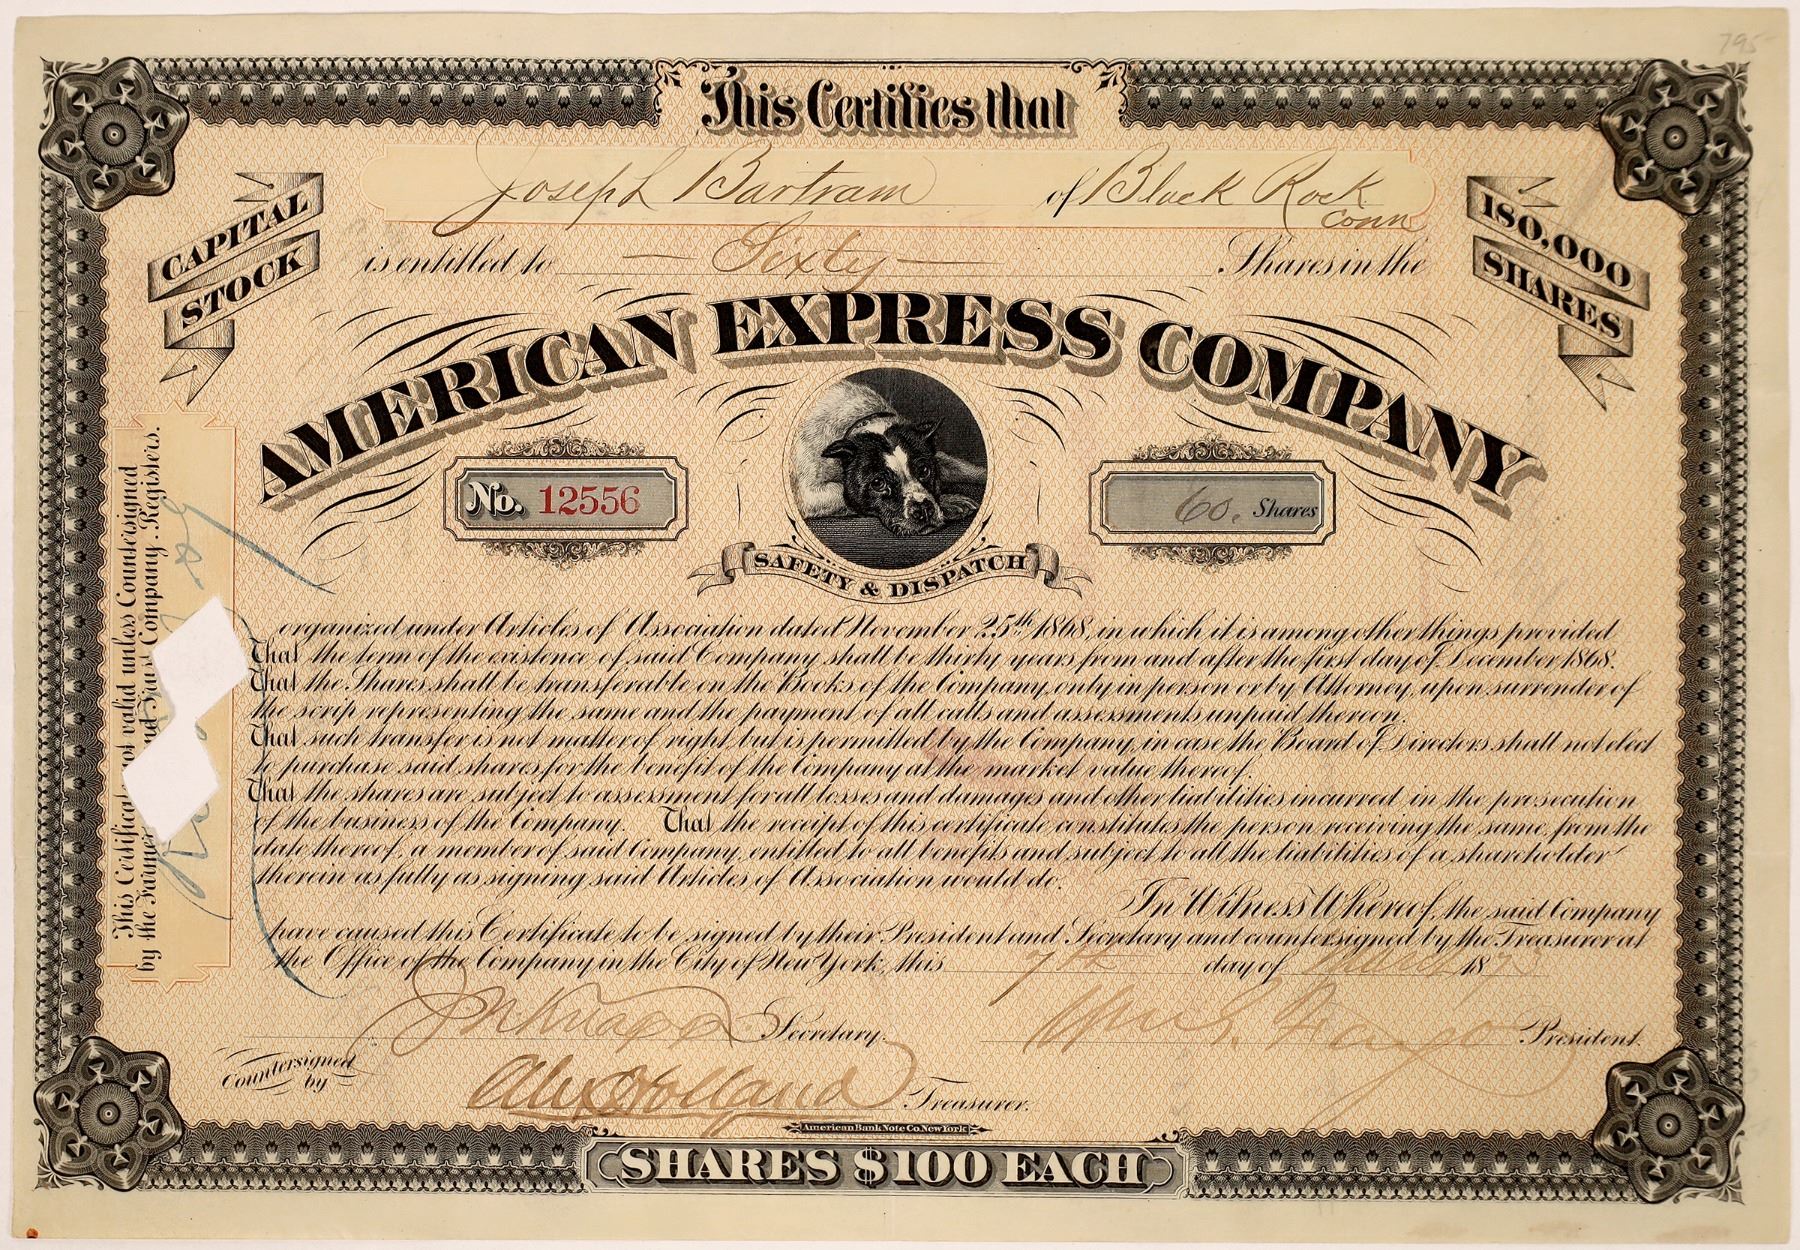 795
This Certifies that
Joseph Bartram of Black Rock
Conn
CAPITAL
STOCK
180,000
SHARES
is entitled to Sixty Shares in the
AMERICAN EXPRESS COMPANY
No. 12556
60. Shares
SAFETY & DISPATCH
This Certificate not valid unless Countersigned
by the Farmer and Trust Company, Registers.
organized under Articles of Association dated November 25th 1868, in which it is among other things provided
That the term of the existence of said Company shall be thirty years from and after the first day of December 1868.
That the Shares shall be transferable on the Books of the Company, only in person or by Attorney, upon surrender of
the scrip representing the same and the payment of all calls and assessments unpaid thereon.
That such transfer is not matter of right, but is permitted by the Company, in case the Board of Directors shall not elect
to purchase said shares for the benefit of the Company at the market value thereof.
That the shares are subject to assessment for all losses and damages and other liabilities incurred in the prosecution
of the business of the Company. That the receipt of this certificate constitutes the person receiving the same, from the
date thereof, a member of said Company, entitled to all benefits and subject to all the liabilities of a shareholder
therein as fully as signing said Articles of Association would do.
In Witness Whereof, the said Company
have caused this Certificate to be signed by their President and Secretary and countersigned by the Treasurer at
the Office of the Company in the City of New York, this 7th day of March 1873
J N Knapp Secretary. Wm G. Fargo President.
Countersigned
by
Alex Holland Treasurer.
American Bank Note Co. New York
SHARES $100 EACH